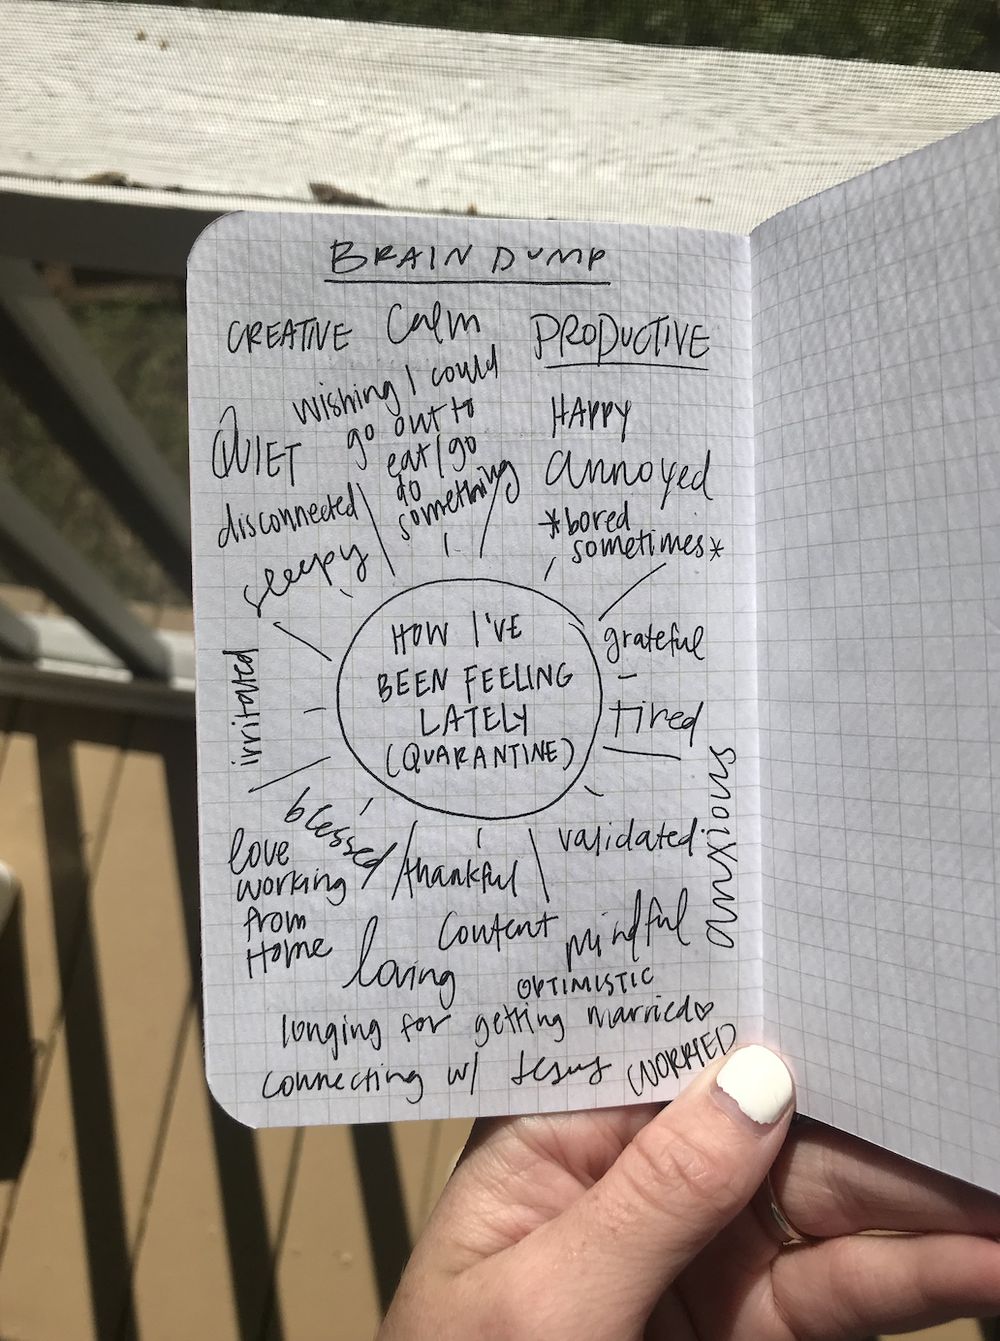 BRAIN DUMP
CREATIVE
Calm
PRODUCTIVE
Wishing I could
go out to
eat/go
do
something
QUIET
HAPPY
annoyed
disconnected
*bored
sometimes*
sleepy
HOW I'VE
BEEN FEELING
LATELY
(QUARANTINE)
grateful
irritated
tired
anxious
blessed
validated
love
working
from
Home
thankful
Content
mindful
loving
OPTIMISTIC
longing for getting married♡
connecting w/ Jesus
WORRIED